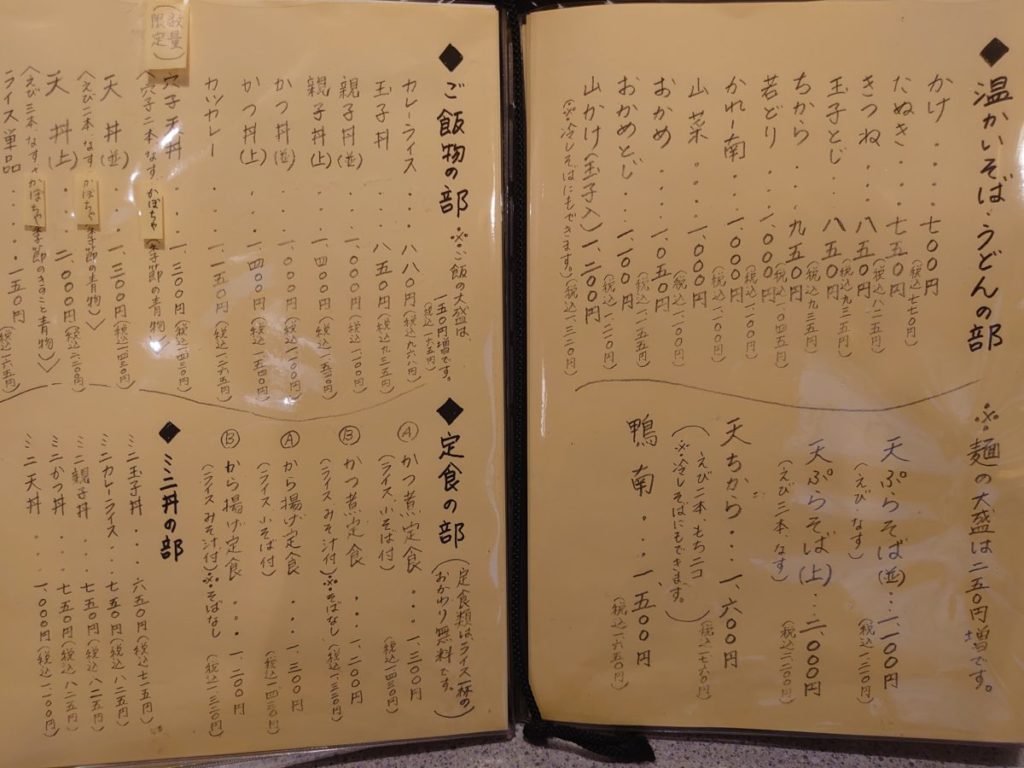 ◆温かいそば・うどんの部 ※麺の大盛は二五〇円増です。
かけ・・・・・七〇〇円
(税込七七〇円)
たぬき・・・・七五〇円
(税込八二五円)
きつね・・・・八五〇円
(税込九三五円)
玉子とじ・・・八五〇円
(税込九三五円)
ちから・・・・九五〇円
(税込一、〇四五円)
若どり・・・一、〇〇〇円
(税込一、一〇〇円)
かれー南・・・一、〇〇〇円
(税込一、一〇〇円)
山菜・・・・一、〇〇〇円
(税込一、一〇〇円)
おかめ・・・一、〇五〇円
(税込一、一五五円)
おかめとじ・・・一、一〇〇円
(税込一、二一〇円)
山かけ(玉子入)一、二〇〇円
(※冷しそばにもできます。)(税込一、三二〇円)
天ぷらそば(並)・・一、一〇〇円
(えび・なす) (税込一、二一〇円)
天ぷらそば(上)・・・二、〇〇〇円
(えび二本、なす) (税込二、二〇〇円)
天ちから・・・一、六〇〇円
(えび二本、もち二コ (税込一、七六〇円)
※冷しそばにもできます。)
鴨南・・・一、五〇〇円
(税込一、六五〇円)
◆ご飯物の部 ※ご飯の大盛は
一五〇円増です。
(税込一六五円)
カレーライス・・・八八〇円(税込九六八円)
玉子丼・・・・八五〇円(税込九三五円)
親子丼(並)・・・一、〇〇〇円(税込一、一〇〇円)
親子丼(上)・・・一、四〇〇円(税込一、五四〇円)
かつ丼(並)・・・一、〇〇〇円(税込一、一〇〇円)
かつ丼(上)・・・一、四〇〇円(税込一、五四〇円)
カツカレー・・・一、一五〇円(税込一、二六五円)
(数量限定)
穴子天丼・・・一、三〇〇円(税込一、四三〇円)
(穴子一本、なす、かぼちゃ、季節の青物)
天丼(並)・・・一、二〇〇円(税込一、三二〇円)
(えび一本、なす、かぼちゃ、季節の青物)
天丼(上)・・・二、〇〇〇円(税込二、二〇〇円)
(えび二本、なす、かぼちゃ、季節のきのこと青物)
ライス単品・・・・一五〇円(税込一六五円)
◆定食の部(定食類はライス一杯の
おかわり無料です。)
Ⓐかつ煮定食・・・一、三〇〇円
(ライス、小そば付) (税込一、四三〇円)
Ⓑかつ煮定食・・・・一、二〇〇円
(ライス、みそ汁付)※そばなし (税込一、三二〇円)
Ⓐから揚げ定食・・・一、三〇〇円
(ライス、小そば付) (税込一、四三〇円)
Ⓑから揚げ定食・・・・一、二〇〇円
(ライス、みそ汁付)※そばなし (税込一、三二〇円)
◆ミニ丼の部
ミニ玉子丼・・・六五〇円(税込七一五円)
ミニカレーライス・・・七五〇円(税込八二五円)
ミニ親子丼・・・七五〇円(税込八二五円)
ミニかつ丼・・・七五〇円(税込八二五円)
ミニ天丼・・・一、〇〇〇円(税込一、一〇〇円)